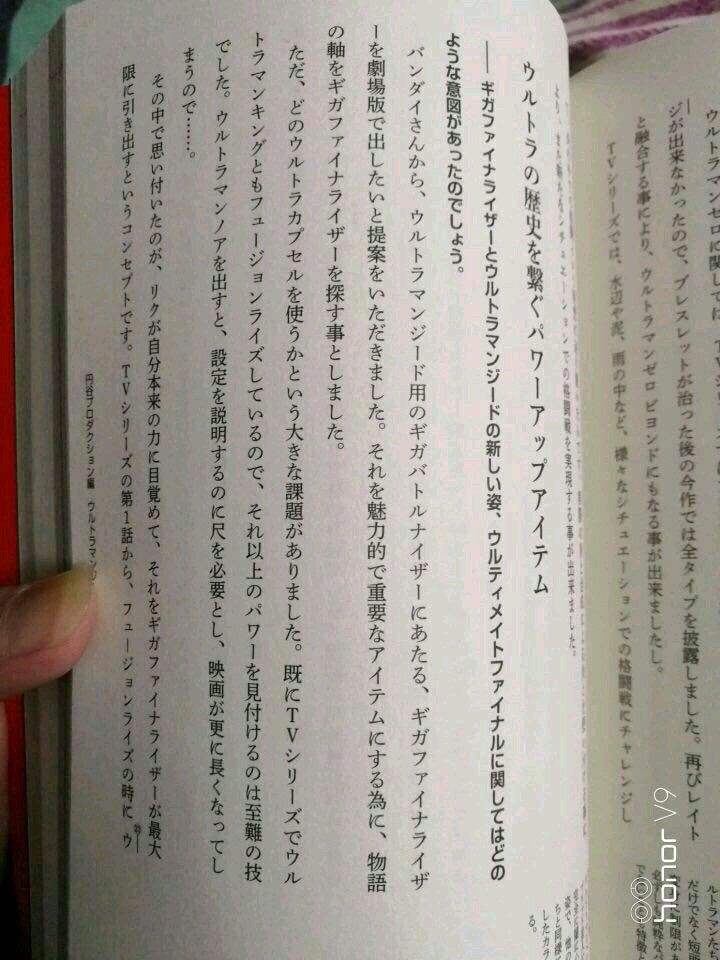 ウルトラの歴史を繋ぐパワーアップアイテム
── ギガファイナライザーとウルトラマンジードの新しい姿、ウルティメイトファイナルに関してはどの
ような意図があったのでしょう。
バンダイさんから、ウルトラマンジード用のギガバトルナイザーにあたる、ギガファイナライザ
ーを劇場版で出したいと提案をいただきました。それを魅力的で重要なアイテムにする為に、物語
の軸をギガファイナライザーを探す事としました。
ただ、どのウルトラカプセルを使うかという大きな課題がありました。既にTVシリーズでウル
トラマンキングともフュージョンライズしているので、それ以上のパワーを見付けるのは至難の技
でした。ウルトラマンノアを出すと、設定を説明するのに尺を必要とし、映画が更に長くなってし
まうので……。
その中で思い付いたのが、リクが自分本来の力に目覚めて、それをギガファイナライザーが最大
限に引き出すというコンセプトです。TVシリーズの第1話から、フュージョンライズの時に、ウ
円谷プロダクション編 ウルトラマン
ジが出来なかったので、ブレスレットが治った後の今作では全タイプを披露しました。再びレイト
と融合する事により、ウルトラマンゼロ ビヨンドにもなる事が出来ましたし。
TVシリーズでは、水辺や泥、雨の中など、様々なシチュエーションでの格闘戦にチャレンジし
シチュエーションでの格闘戦を実現する事が出来ました。
honor V9